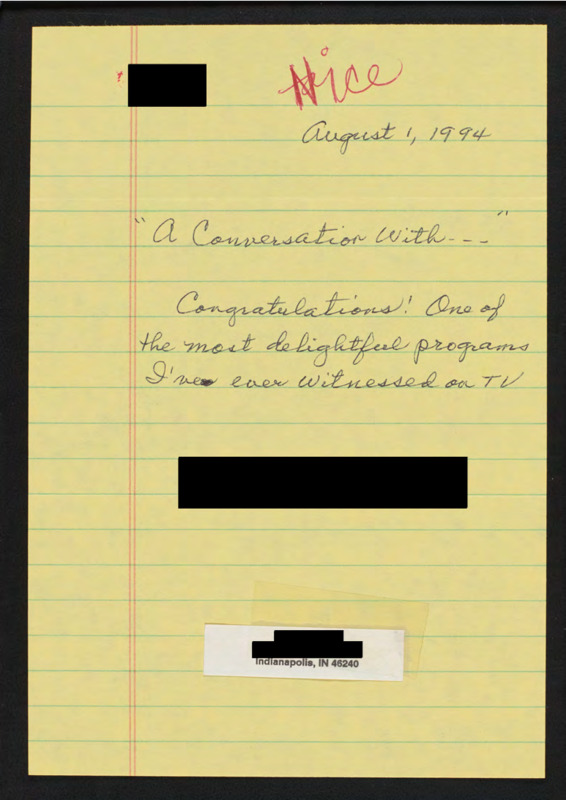 Nice
August 1, 1994
"A Conversation With---"
Congratulations! One of
the most delightful programs
I've ever witnessed on TV
Indianapolis, IN 46240